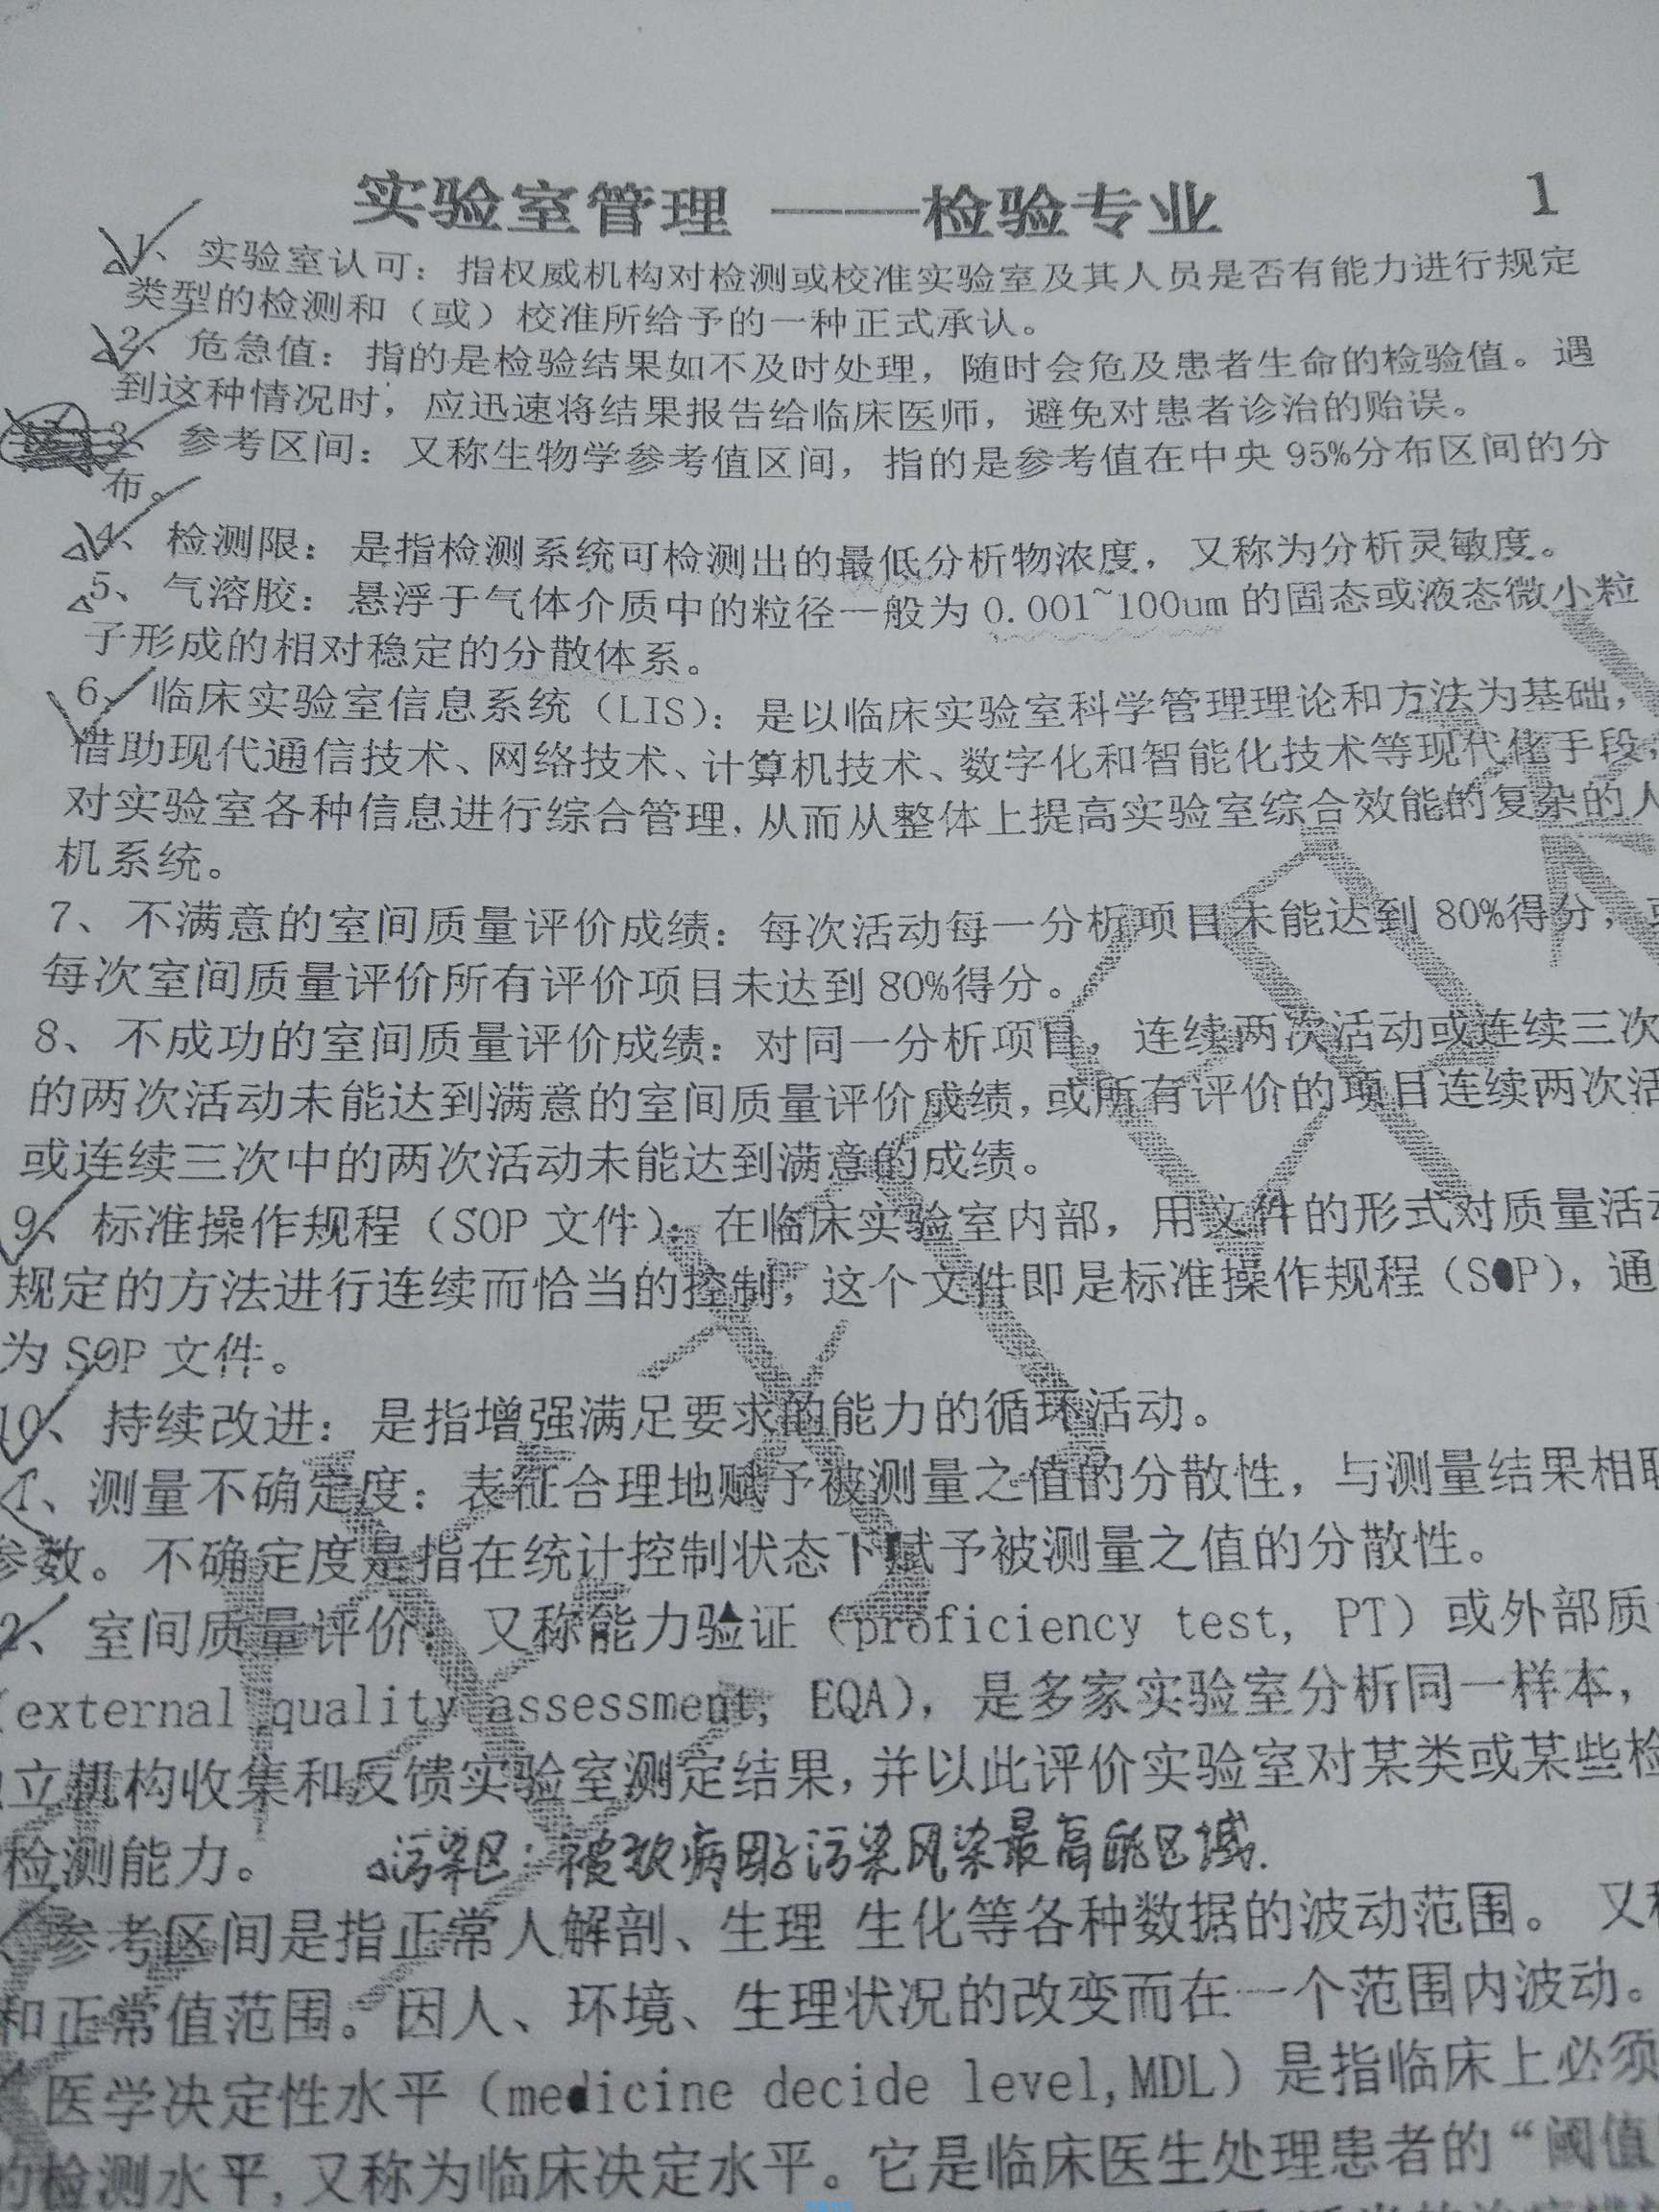 实验室管理 ——检验专业 1
1、实验室认可：指权威机构对检测或校准实验室及其人员是否有能力进行规定
类型的检测和（或）校准所给予的一种正式承认。
2、危急值：指的是检验结果如不及时处理，随时会危及患者生命的检验值。遇
到这种情况时，应迅速将结果报告给临床医师，避免对患者诊治的贻误。
3、参考区间：又称生物学参考值区间，指的是参考值在中央 95%分布区间的分
布。
4、检测限：是指检测系统可检测出的最低分析物浓度，又称为分析灵敏度。
5、气溶胶：悬浮于气体介质中的粒径一般为 0.001~100um 的固态或液态微小粒
子形成的相对稳定的分散体系。
6、临床实验室信息系统（LIS）：是以临床实验室科学管理理论和方法为基础，
借助现代通信技术、网络技术、计算机技术、数字化和智能化技术等现代化手段，
对实验室各种信息进行综合管理，从而从整体上提高实验室综合效能的复杂的人
机系统。
7、不满意的室间质量评价成绩：每次活动每一分析项目未能达到 80%得分，
每次室间质量评价所有评价项目未达到 80%得分。
8、不成功的室间质量评价成绩：对同一分析项目，连续两次活动或连续三次
的两次活动未能达到满意的室间质量评价成绩，或所有评价的项目连续两次活
或连续三次中的两次活动未能达到满意的成绩。
9、标准操作规程（SOP 文件）：在临床实验室内部，用文件的形式对质量活动
规定的方法进行连续而恰当的控制，这个文件即是标准操作规程（SOP），通
为 SOP 文件。
10、持续改进：是指增强满足要求的能力的循环活动。
1、测量不确定度：表征合理地赋予被测量之值的分散性，与测量结果相联
参数。不确定度是指在统计控制状态下赋予被测量之值的分散性。
2、室间质量评价：又称能力验证（proficiency test, PT）或外部质
(external quality assessment, EQA），是多家实验室分析同一样本，
立机构收集和反馈实验室测定结果，并以此评价实验室对某类或某些检
检测能力。 污染区：被致病因子污染风染最高的区域.
、参考区间是指正常人解剖、生理 生化等各种数据的波动范围。 又
和正常值范围。因人、环境、生理状况的改变而在一个范围内波动。
医学决定性水平（medicine decide level,MDL）是指临床上必须
的检测水平，又称为临床决定水平。它是临床医生处理患者的“阈值